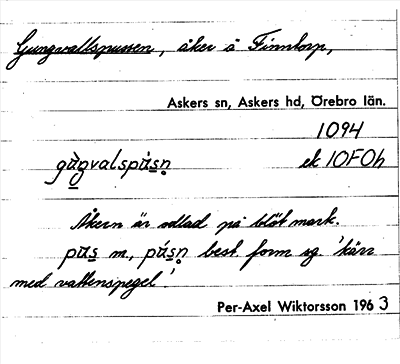 Ljungvallspussen, åker å Finntorp,
Askers sn, Askers hd, Örebro län.
1094
ek 10F0h
Åkern är odlad på blöt mark.
pùs m, pùsn best. form sg. 'kärr
med vattenspegel'.
Per-Axel Wiktorsson 1963